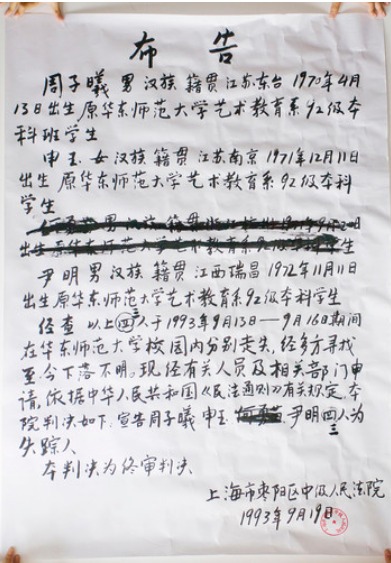 布告
周子曦 男 汉族 籍贯江苏东台 1970年4月
13日出生 原华东师范大学艺术教育系92级本
科班学生
申玉 女 汉族 籍贯江苏南京 1971年12月11日
出生 原华东师范大学艺术教育系92级本科
学生
尹明 男 汉族 籍贯江西瑞昌 1972年11月11日
出生 原华东师范大学艺术教育系92级本科学生
经查 以上四三人于1993年9月13日——9月16日期间
在华东师范大学校园内分别走失,经多方寻找
至今下落不明。现经有关人员及相关部门申
请,依据中华人民共和国《民法通则》有关规定,本
院判决如下:宣告周子曦 申玉 尹明四三人为
失踪人
本判决为终审判决
上海市枣阳区中级人民法院
1993年9月19日